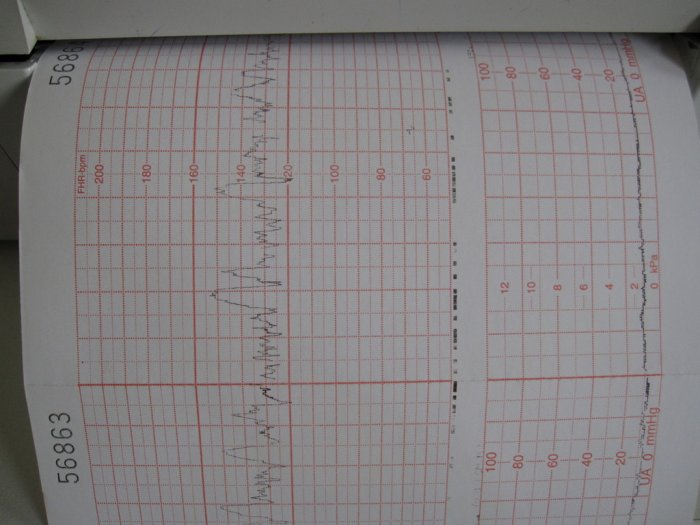 5686
FHR-bpm
200
180
160
140
120
100
80
60
100
80
60
40
20
UA 0 mmHg
12
10
8
6
4
2
0 kPa
56863
100
80
60
40
20
UA 0 mmHg